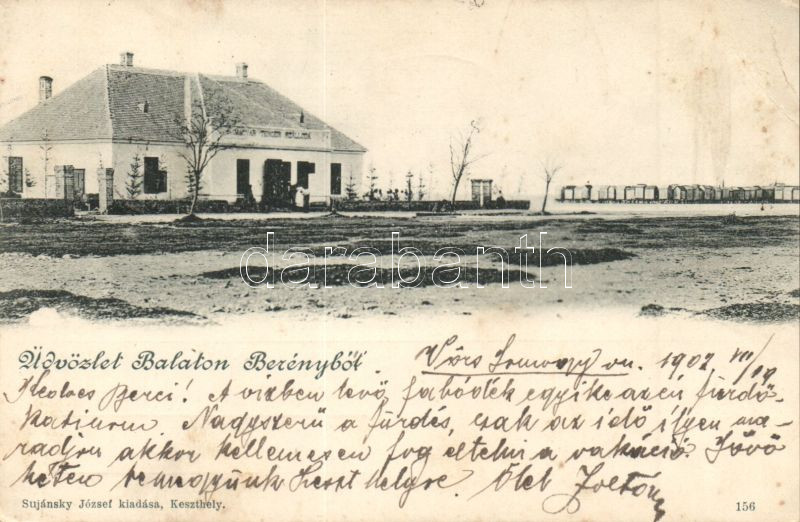 MAGYAR TENGER
darabanth
Üdvözlet Balaton Berényből
Vörs Somogy m. 1902 VII/19
Kedves Berci! A vizben levő fabódék egyike az én fürdő-
kabinom. Nagyszerű a fürdés, csak az idő ilyen ma-
radjon akkor kellemesen fog eltelni a vakáció. Jövő
héten bemegyünk Keszthelyre. Ölel Zoltán
Sujánsky József kiadása, Keszthely.
156